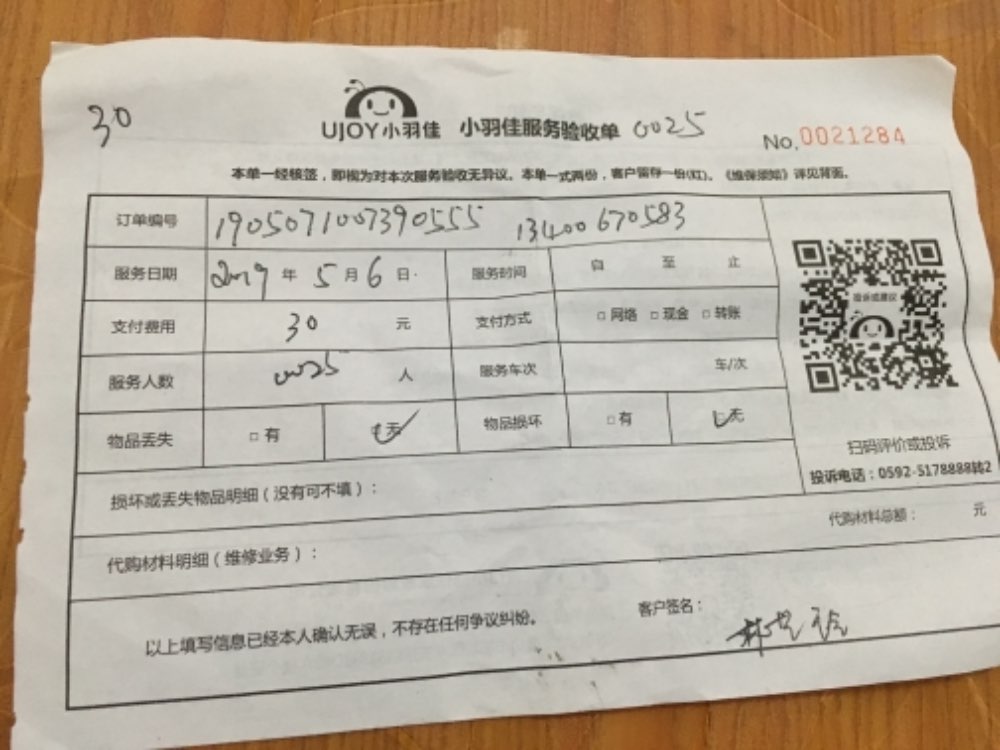 30
UJOY小羽佳 小羽佳服务验收单 0025
No.0021284
本单一经核签，即视为对本次服务验收无异议。本单一式两份，客户留存一份(红)。《维保须知》详见背面。
订单编号 1905071007390555 13400670583
服务日期 2019年5月6日 服务时间 自 至 止
支付费用 30 元 支付方式 □网络 □现金 □转账
服务人数 0025 人 服务车次 车/次
物品丢失 □有 □无 物品损坏 □有 □无
投诉或建议
扫码评价或投诉
投诉电话：0592-5178888转2
损坏或丢失物品明细（没有可不填）：
代购材料总额： 元
代购材料明细（维修业务）：
以上填写信息已经本人确认无误，不存在任何争议纠纷。
客户签名：